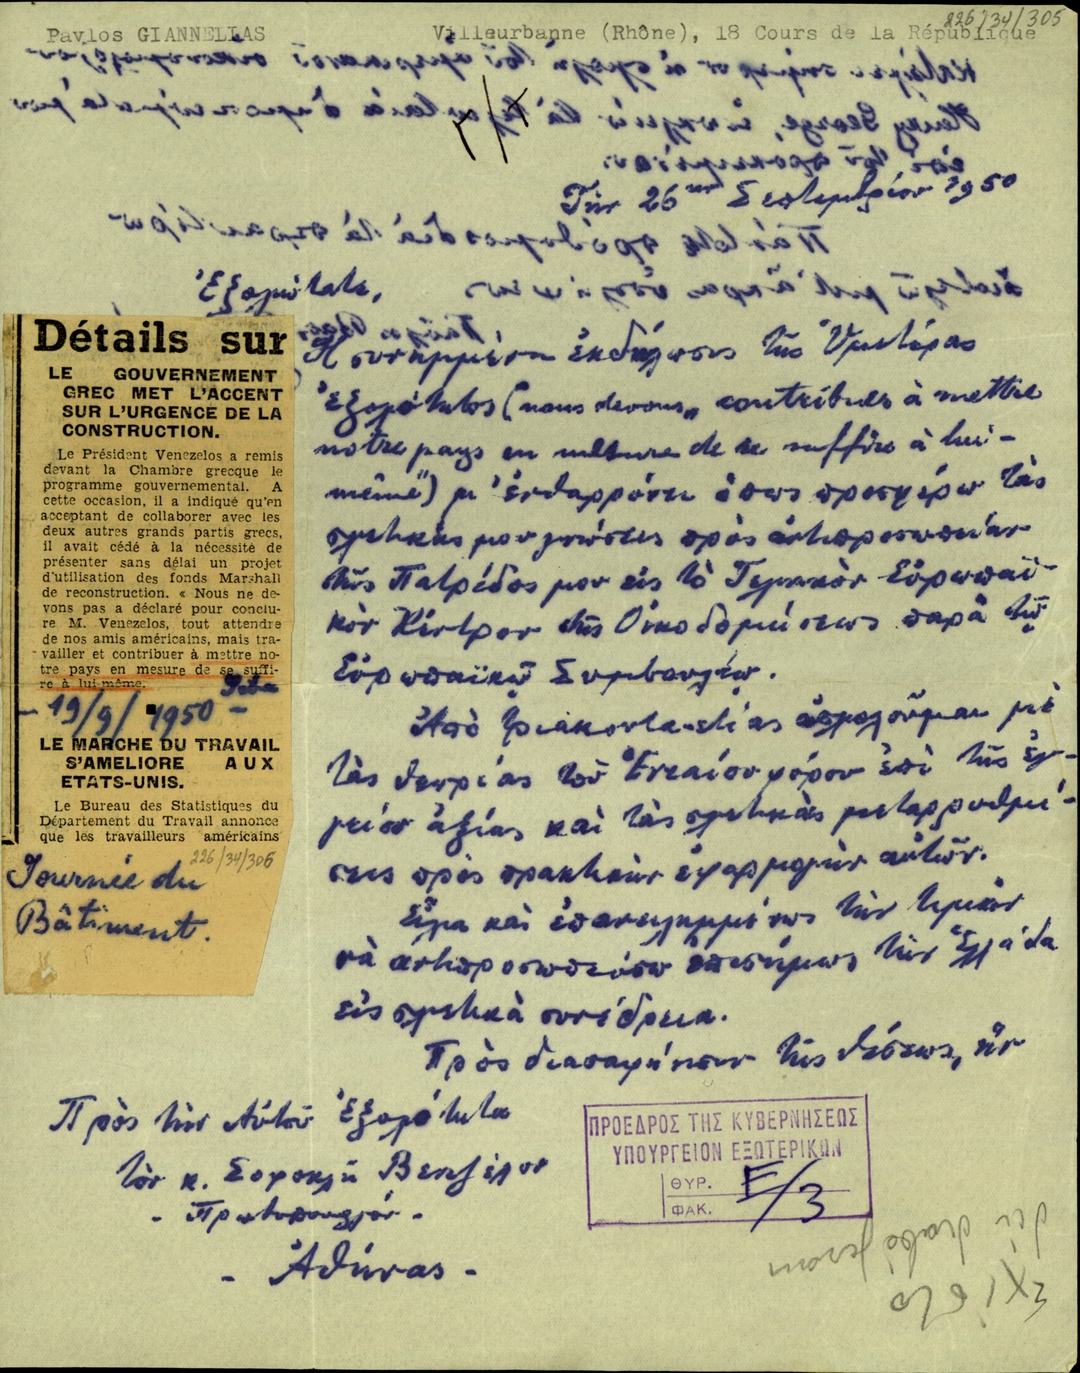 226/34/305
Pavlos GIANNELIAS Villeurbanne (Rhône), 18 Cours de la République
Τὴν 26ην Σεπτεμβρίου 1950
Ἐξοχώτατε,
Ἡ συνημμένη ἐκδήλωσις τῆς Ὑμετέρας
Ἐξοχότητος ("nous devons" contribuer à mettre
notre pays en mesure de se suffire à lui-
même") μ' ἐνθαρρύνει ὅπως προσφέρω τὰς
σχετικάς μου γνώσεις πρὸς ἀντιπροσωπείαν
τῆς Πατρίδος μου εἰς τὸ Γενικὸν Εὐρωπαϊ-
κὸν Κέντρον τῆς Οἰκοδομήσεως παρὰ τῷ
Εὐρωπαϊκῷ Συμβουλίῳ.
Ἀπὸ τριακονταετίας ἀσχολοῦμαι μὲ
τὰς θεωρίας τοῦ Ἑνιαίου φόρου ἐπὶ τῆς ἐγ-
γείου ἀξίας καὶ τὰς σχετικὰς μεταρρυθμί-
σεις πρὸς πρακτικὴν ἐφαρμογὴν αὐτῶν.
Εἶχα καὶ ἐπανειλημμένως τὴν τιμὴν
νὰ ἀντιπροσωπεύσω ἐπισήμως τὴν Ἑλλάδα
εἰς σχετικὰ συνέδρια.
Πρὸς διασαφήνισιν τῆς θέσεως, ἣν
Πρὸς τὴν Αὐτοῦ Ἐξοχότητα
τὸν κ. Σοφοκλῆ Βενιζέλον
- Πρωθυπουργόν -
- Ἀθήνας -
Détails sur
LE GOUVERNEMENT
GREC MET L'ACCENT
SUR L'URGENCE DE LA
CONSTRUCTION.
Le Président Venezelos a remis
devant la Chambre grecque le
programme gouvernemental. A
cette occasion, il a indiqué qu'en
acceptant de collaborer avec les
deux autres grands partis grecs,
il avait cédé à la nécessité de
présenter sans délai un projet
d'utilisation des fonds Marshall
de reconstruction. « Nous ne de-
vons pas a déclaré pour conclu-
re M. Venezelos, tout attendre
de nos amis américains, mais tra-
vailler et contribuer à mettre no-
tre pays en mesure de se suffi-
re à lui-même.
- 19/9/1950 -
LE MARCHE DU TRAVAIL
S'AMELIORE AUX
ETATS-UNIS.
Le Bureau des Statistiques du
Département du Travail annonce
que les travailleurs américains
226/34/306
Journée du
Bâtiment.
ΠΡΟΕΔΡΟΣ ΤΗΣ ΚΥΒΕΡΝΗΣΕΩΣ
ΥΠΟΥΡΓΕΙΟΝ ΕΞΩΤΕΡΙΚΩΝ
ΘΥΡ. E/3
ΦΑΚ.